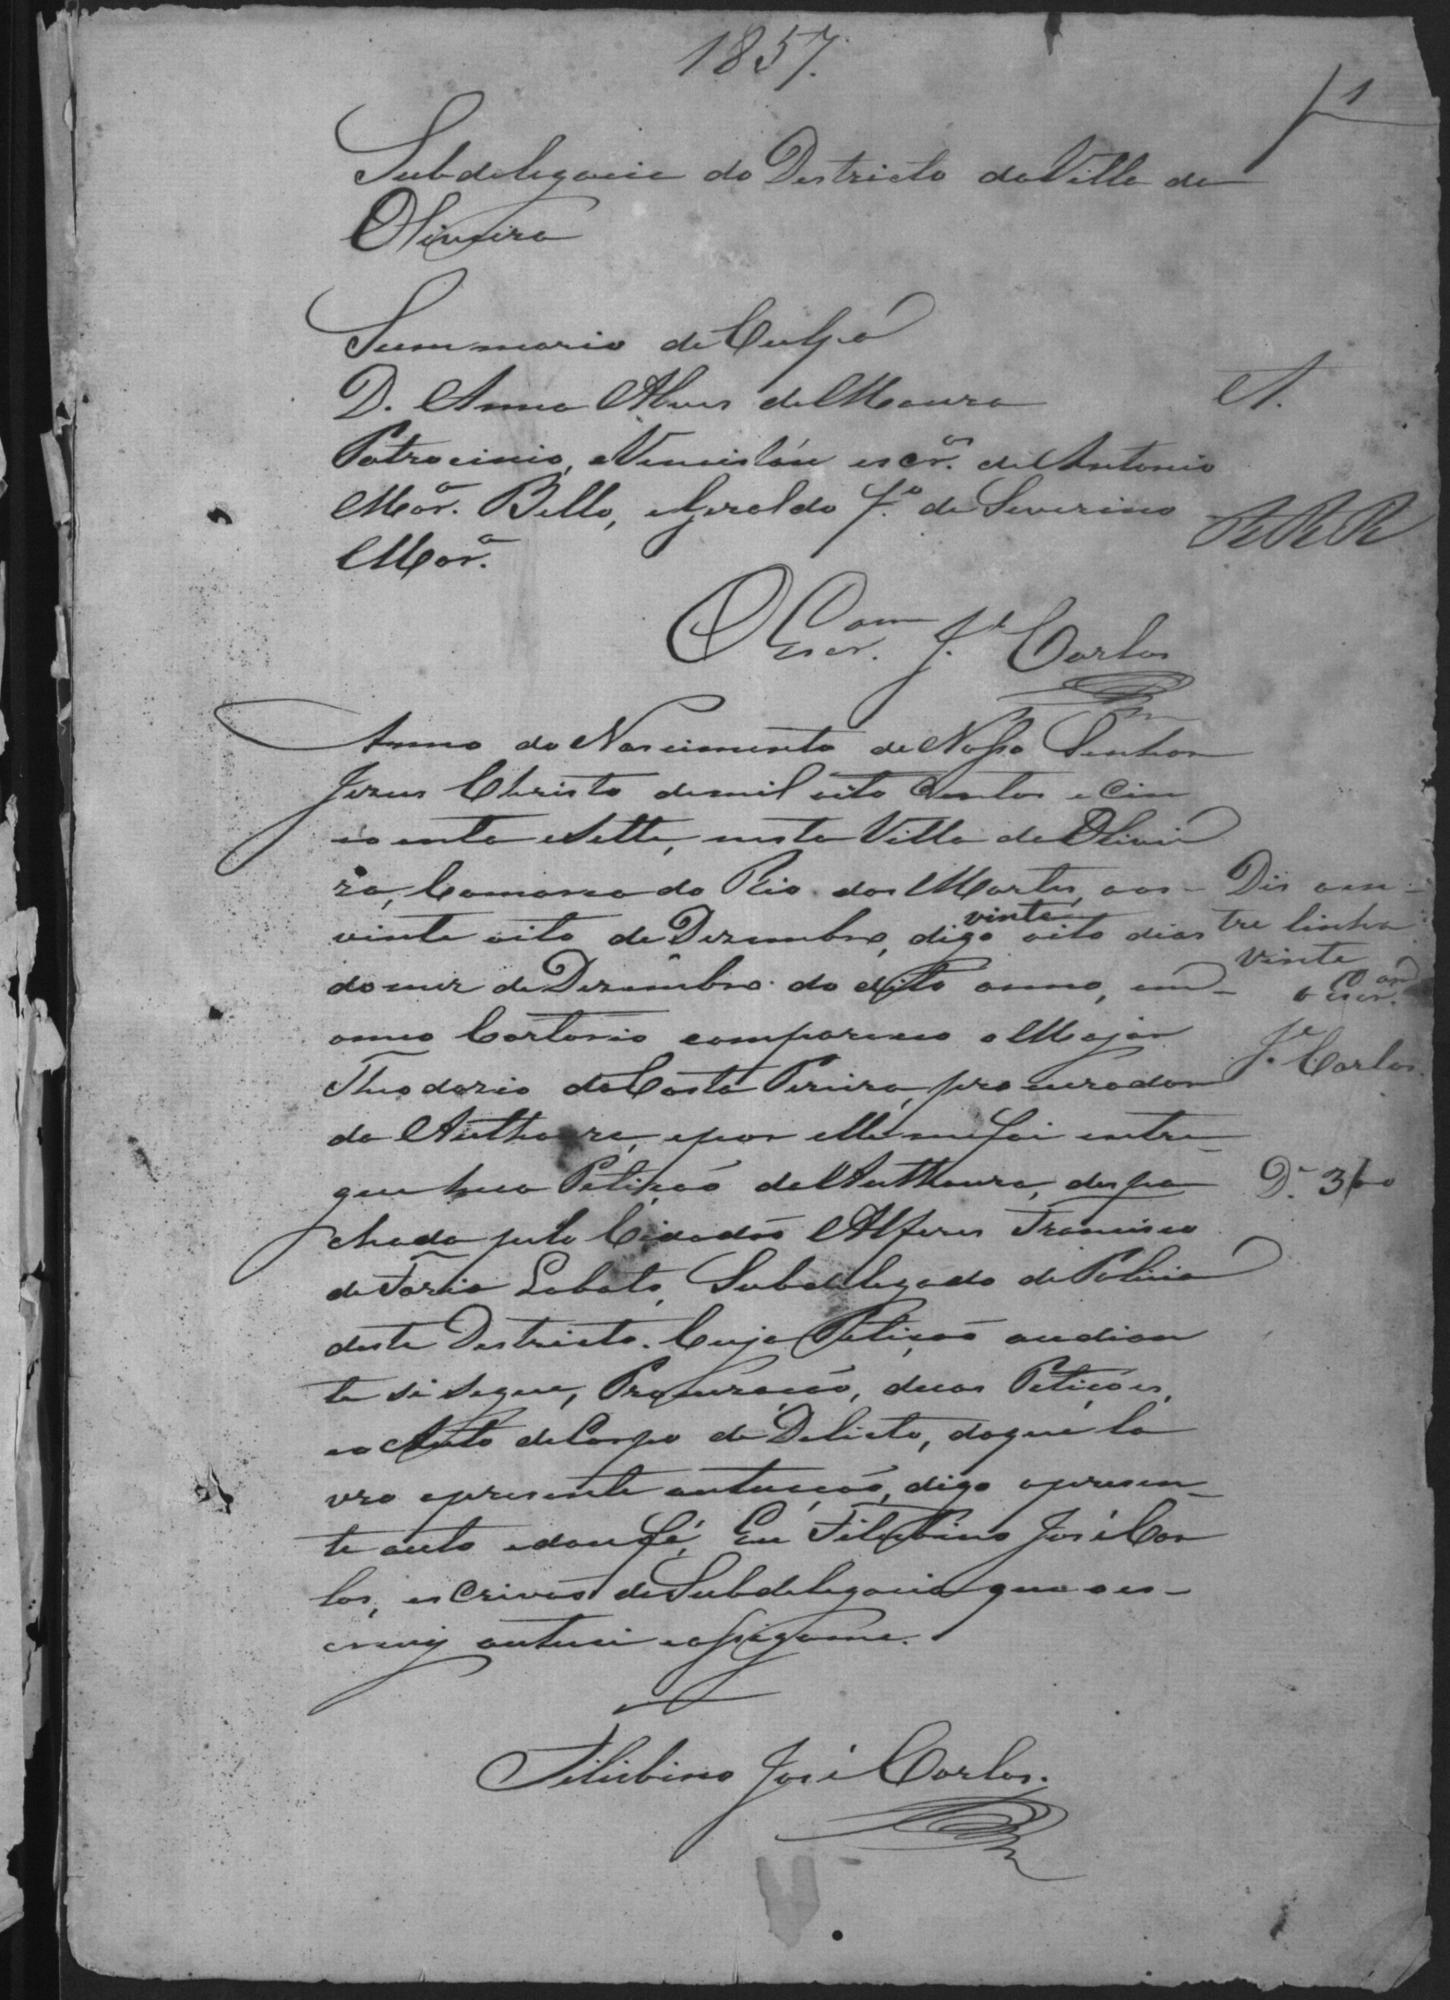 1857.
f 1
Subdelegacia do Destricto da Villa da
Oliveira
Summario de Culpa
D. Anna Alves de Moura A.
Patrocinio, e Vencislau escr.os de Antonio
Mor.a Bello, e Geraldo f.o de Severino RRRR
Mor.a
O Escr.am J.e Carlos
Anno do Nascimento de Nosso Senhor
Jezus Christo de mil oito Centos e Cin
coenta e Sette, nesta Villa de Olivei
ra, Comarca do Rio das Mortes, aos
vinte oito de Dezembro, digo vinte oito dias
do mez de Dezembro do dito anno, em
o meo Cartorio compareceo o Major
Theodozio da Costa Pereira, procurador
da Authora, e por elle me foi entre-
gue hua Petiçaõ da Authoura, despa
chada pelo Cidadaõ Alferes Francisco
de Faria Lobato, Subdelegado de Policia
deste Destricto. Cuja Petiçaõ audian
te se segue, Procuraçaõ, duas Petiçoes,
e o Auto de Corpo de Delicto, do que la
vro apresente autuaçaõ, digo o presen-
te auto e dou fé, Eu Filisbino José Car
los, escrivaõ da Subdelegacia que o es-
crevy autuei e assigname.
Filisbino José Carlos.
Dis a en-
tre linha
vinte
O Escr.am
J.e Carlos
D.- 300